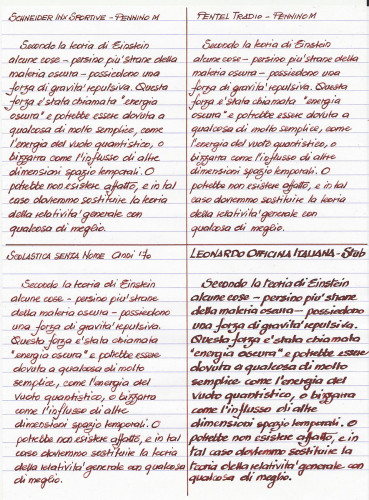 SCHNEIDER INX SPORTIVE - PENNINO M
Secondo la teoria di Einstein
alcune cose - persino piu' strane della
materia oscura - possiedono una
forza di gravita' repulsiva. Questa
forza e' stata chiamata "energia
oscura" e potrebbe essere dovuta a
qualcosa di molto semplice, come
l'energia del vuoto quantistico, o
bizzarra come l'influsso di altre
dimensioni spazio temporali. O
potrebbe non esistere affatto, e in tal
caso dovremmo sostituire la teoria
della relatività' generale con
qualcosa di meglio.
PENTEL TRADIO - PENNINO M
Secondo la teoria di Einstein
alcune cose - persino piu' strane della
materia oscura - possiedono una
forza di gravita' repulsiva. Questa
forza e' stata chiamata "energia
oscura" e potrebbe essere dovuta a
qualcosa di molto semplice, come
l'energia del vuoto quantistico, o
bizzarra come l'influsso di altre
dimensioni spazio temporali. O
potrebbe non esistere affatto, e in tal
caso dovremmo sostituire la teoria
della relativita' generale con
qualcosa di meglio.
SCOLASTICA SENZA NOME ANNI '70
Secondo la teoria di Einstein
alcune cose - persino piu' strane
della materia oscura - possiedono
una forza di gravita' repulsiva.
Questa forza e' stata chiamata
"energia oscura" e potrebbe essere
dovuta a qualcosa di molto
semplice, come l'energia del
vuoto quantistico, o bizzarra
come l'influsso di altre
dimensioni spazio temporali. O
potrebbe non esistere affatto, e in tal
caso dovremmo sostituire la teoria
della relativita' generale con qualcosa
di meglio.
LEONARDO OFFICINA ITALIANA - Stub
Secondo la teoria di Einstein
alcune cose - persino piu' strane
della materia oscura - possiedono
una forza di gravita' repulsiva.
Questa forza e' stata chiamata
"energia oscura" e potrebbe essere
dovuta a qualcosa di molto
semplice, come l'energia del
vuoto quantistico, o bizzarra
come l'influsso di altre
dimensioni spazio temporali. O
potrebbe non esistere affatto, e in
tal caso dovremmo sostituire la
teoria della relativita' generale con
qualcosa di meglio.